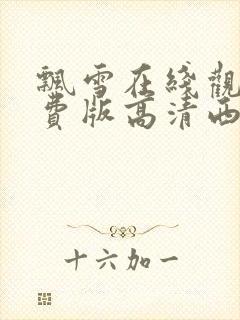 飄雪在綫觀
費版高清西
十六加一